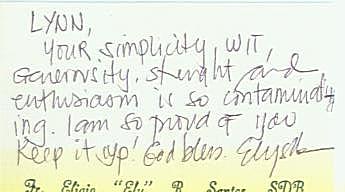 LYNN,
YOUR simplicity, WIT,
Generosity, strenght and
enthusiasm is so contaminat
ing. I am so proud of you
Keep it up! God bless.
Fr. Elicio "Ely" B. Santos SDB